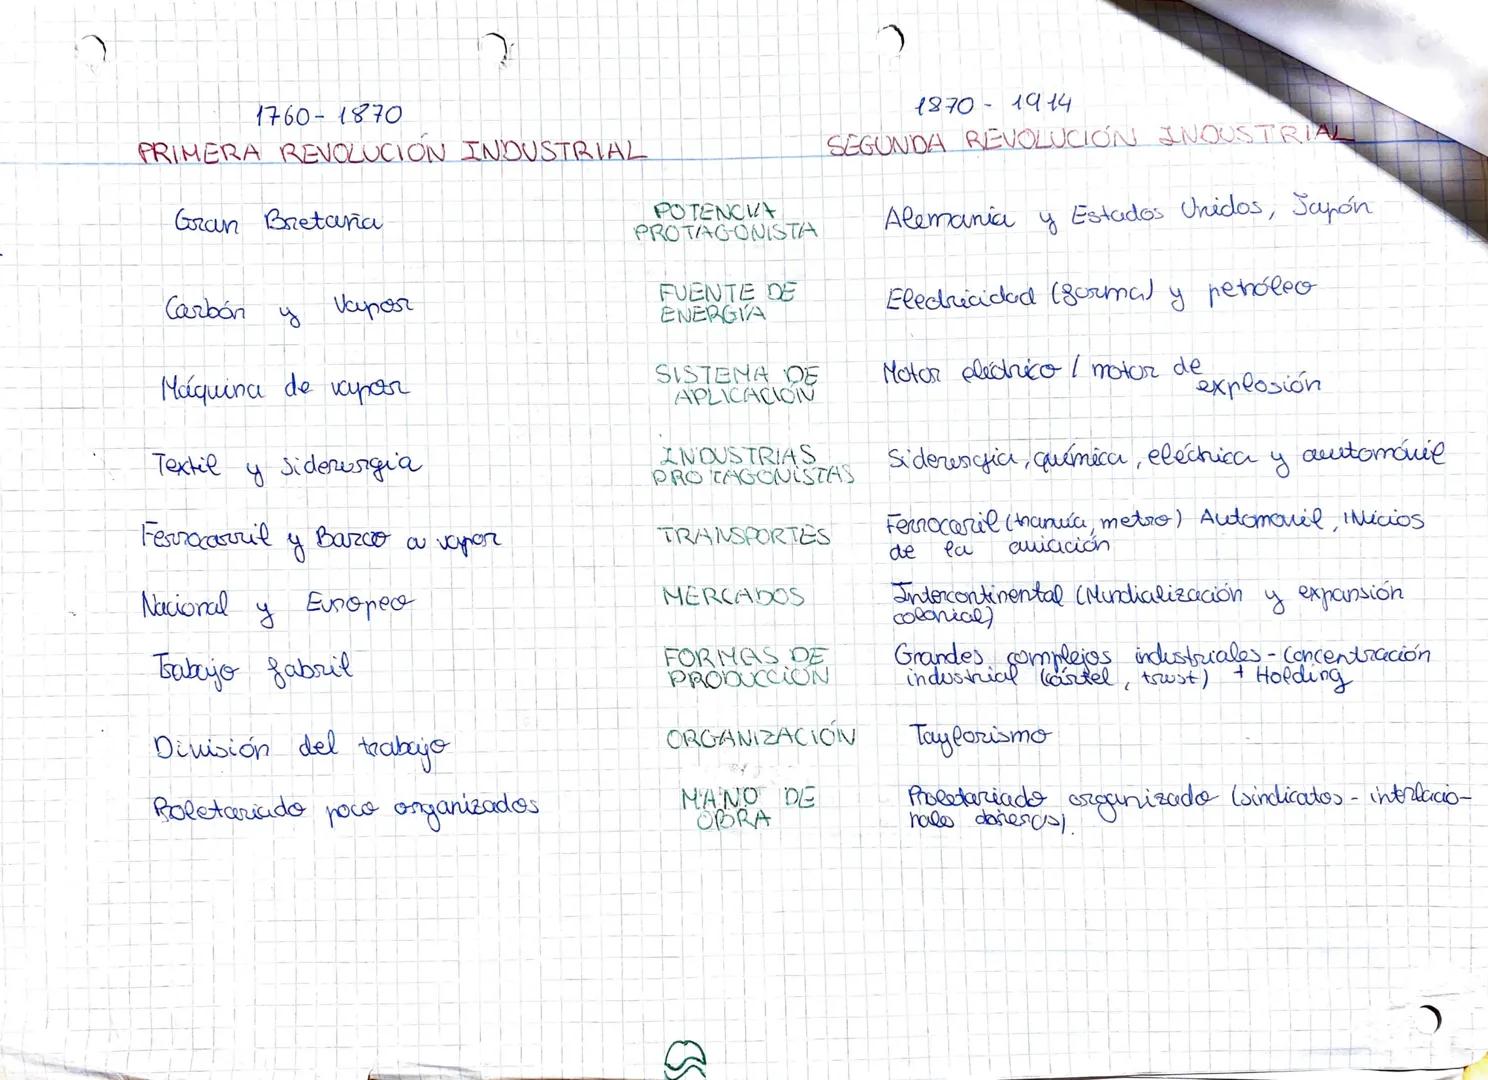 1760 - 1870
PRIMERA REVOLUCIÓN INDUSTRIAL
1870 - 1914
SEGUNDA REVOLUCIÓN INDUSTRIAL
Gran Bretaña
POTENCIA
PROTAGONISTA
Alemania y Estados Unidos, Japón
Carbón y Vapor
FUENTE DE
ENERGÍA
Electricidad (forma) y petróleo
Máquina de vapor
SISTEMA DE
APLICACIÓN
Motor eléctrico / motor de
explosión
Textil y siderurgia
INDUSTRIAS
PROTAGONISTAS
Siderurgia, química, eléctrica y automóvil
Ferrocarril y Barco a vapor
TRANSPORTES
Ferrocaril (tranvía, metro) Automovil, INicios
de la aviación
Nacional y Europeo
MERCADOS
Intercontinental (Mundialización y expansión
colonial)
Trabajo fabril
FORMAS DE
PRODUCCIÓN
Grandes complejos industriales - Concentración
industrial (cártel, trust) + Holding
División del trabajo
ORGANIZACIÓN
Taylorismo
Proletariado poco organizados
MANO DE
OBRA
Proletariado organizado (sindicatos -
nales